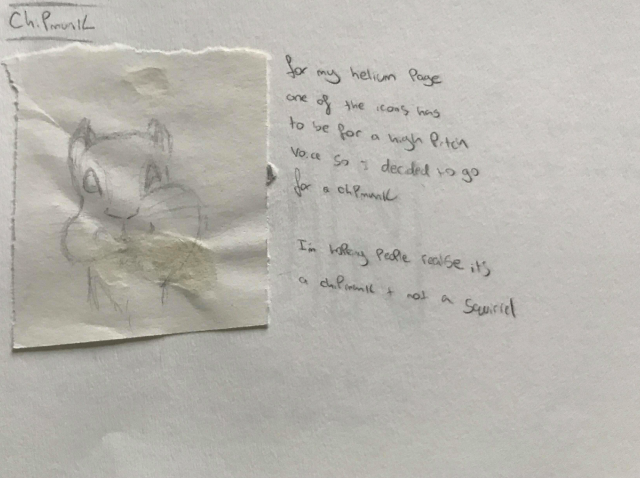 Chipmunk
for my helium Page
one of the icons has
to be for a high Pitch
voice so i decided to go
for a chipmunk
I'm hoping People realise its
a chipmunk + not a Squirrel